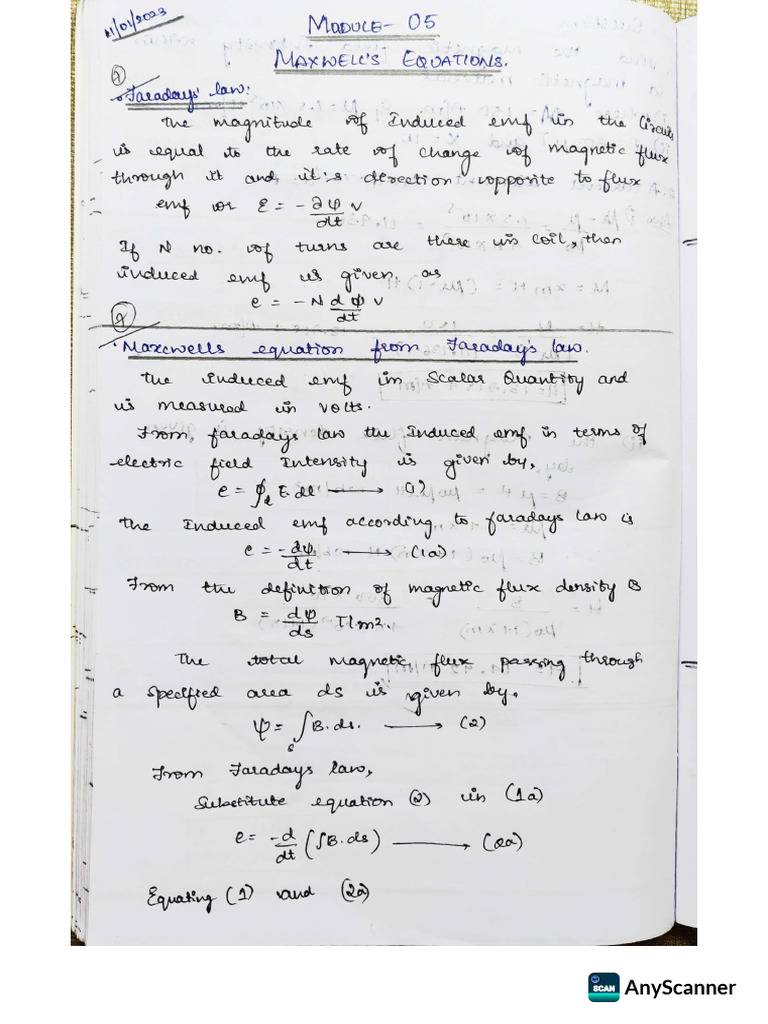 11/01/2023
MODULE - 05
MAXWELL'S EQUATIONS.
Faradays' law:
The magnitude of Induced emf in the Circuit
is equal to the rate of change of magnetic flux
through it and it's direction opposite to flux
emf or ε = -∂ψ/dt v
If N no. of turns are there in coil, then
induced emf is given as
e = -N dφ/dt v
Maxcwells equation from Faraday's law.
The induced emf in Scalar Quantity and
is measured in volts.
From, faradays law the Induced emf in terms of
electric field Intensity is given by,
e = ∮ E.dl → (1)
the Induced emf according to faradays law is
e = -dψ/dt → (1a)
From the definition of magnetic flux density B
B = dψ/ds T/m².
The total magnetic flux passing through
a specified area ds is given by.
ψ = ∫ B.ds. → (2)
From Faradays law,
Substitute equation (2) in (1a)
e = -d/dt (∫B.ds) → (2a)
Equating (1) and (2a)
SCAN AnyScanner